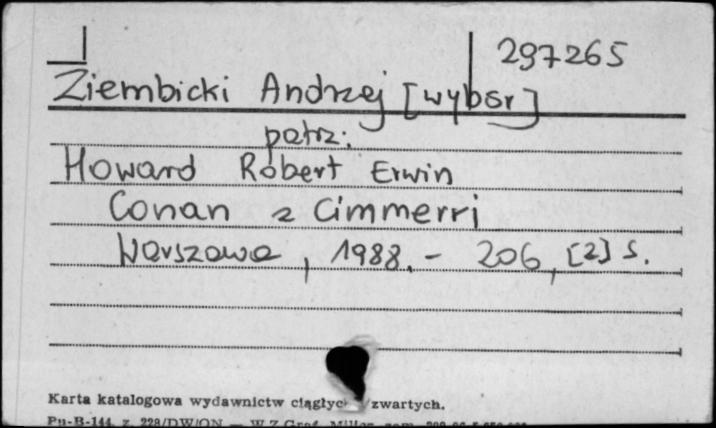 297265
Ziembicki Andrzej [wybór]
patrz:
Howard Robert Erwin
Conan z Cimmerri
Warszawa, 1988. - 206, [2] s.
Karta katalogowa wydawnictw ciągłyc zwartych.
Pu-B-144, z. 228/DW/ON — W.Z.Graf.